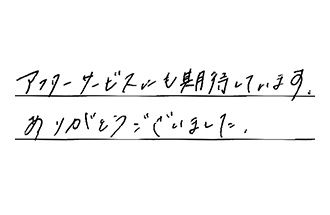 アフターサービスにも期待しています。
ありがとうございました。